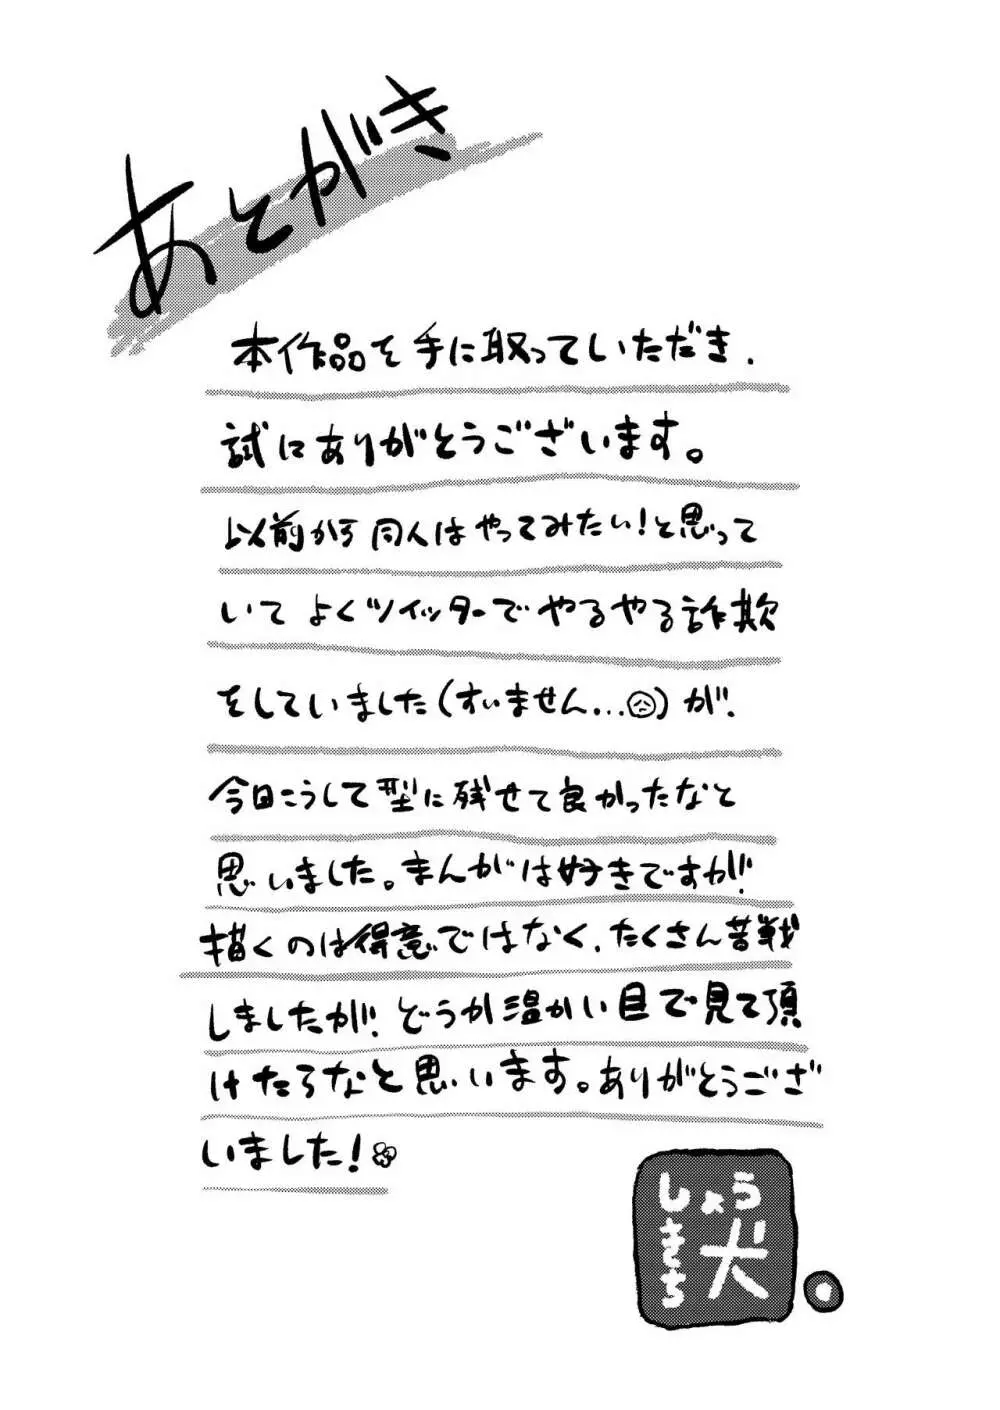 あとがき
本作品を手に取っていただき、
試にありがとうございます。
以前から同人はやってみたい!と思って
いてよくツイッターでやるやる詐欺
をしていました(すいません...)が、
今日こうして型に残せて良かったなと
思いました。まんがは好きですが、
描くのは得意ではなく、たくさん苦戦
しましたが、どうか温かい目で見て頂
けたらなと思います。ありがとうござ
いました!
しょう
きち
犬